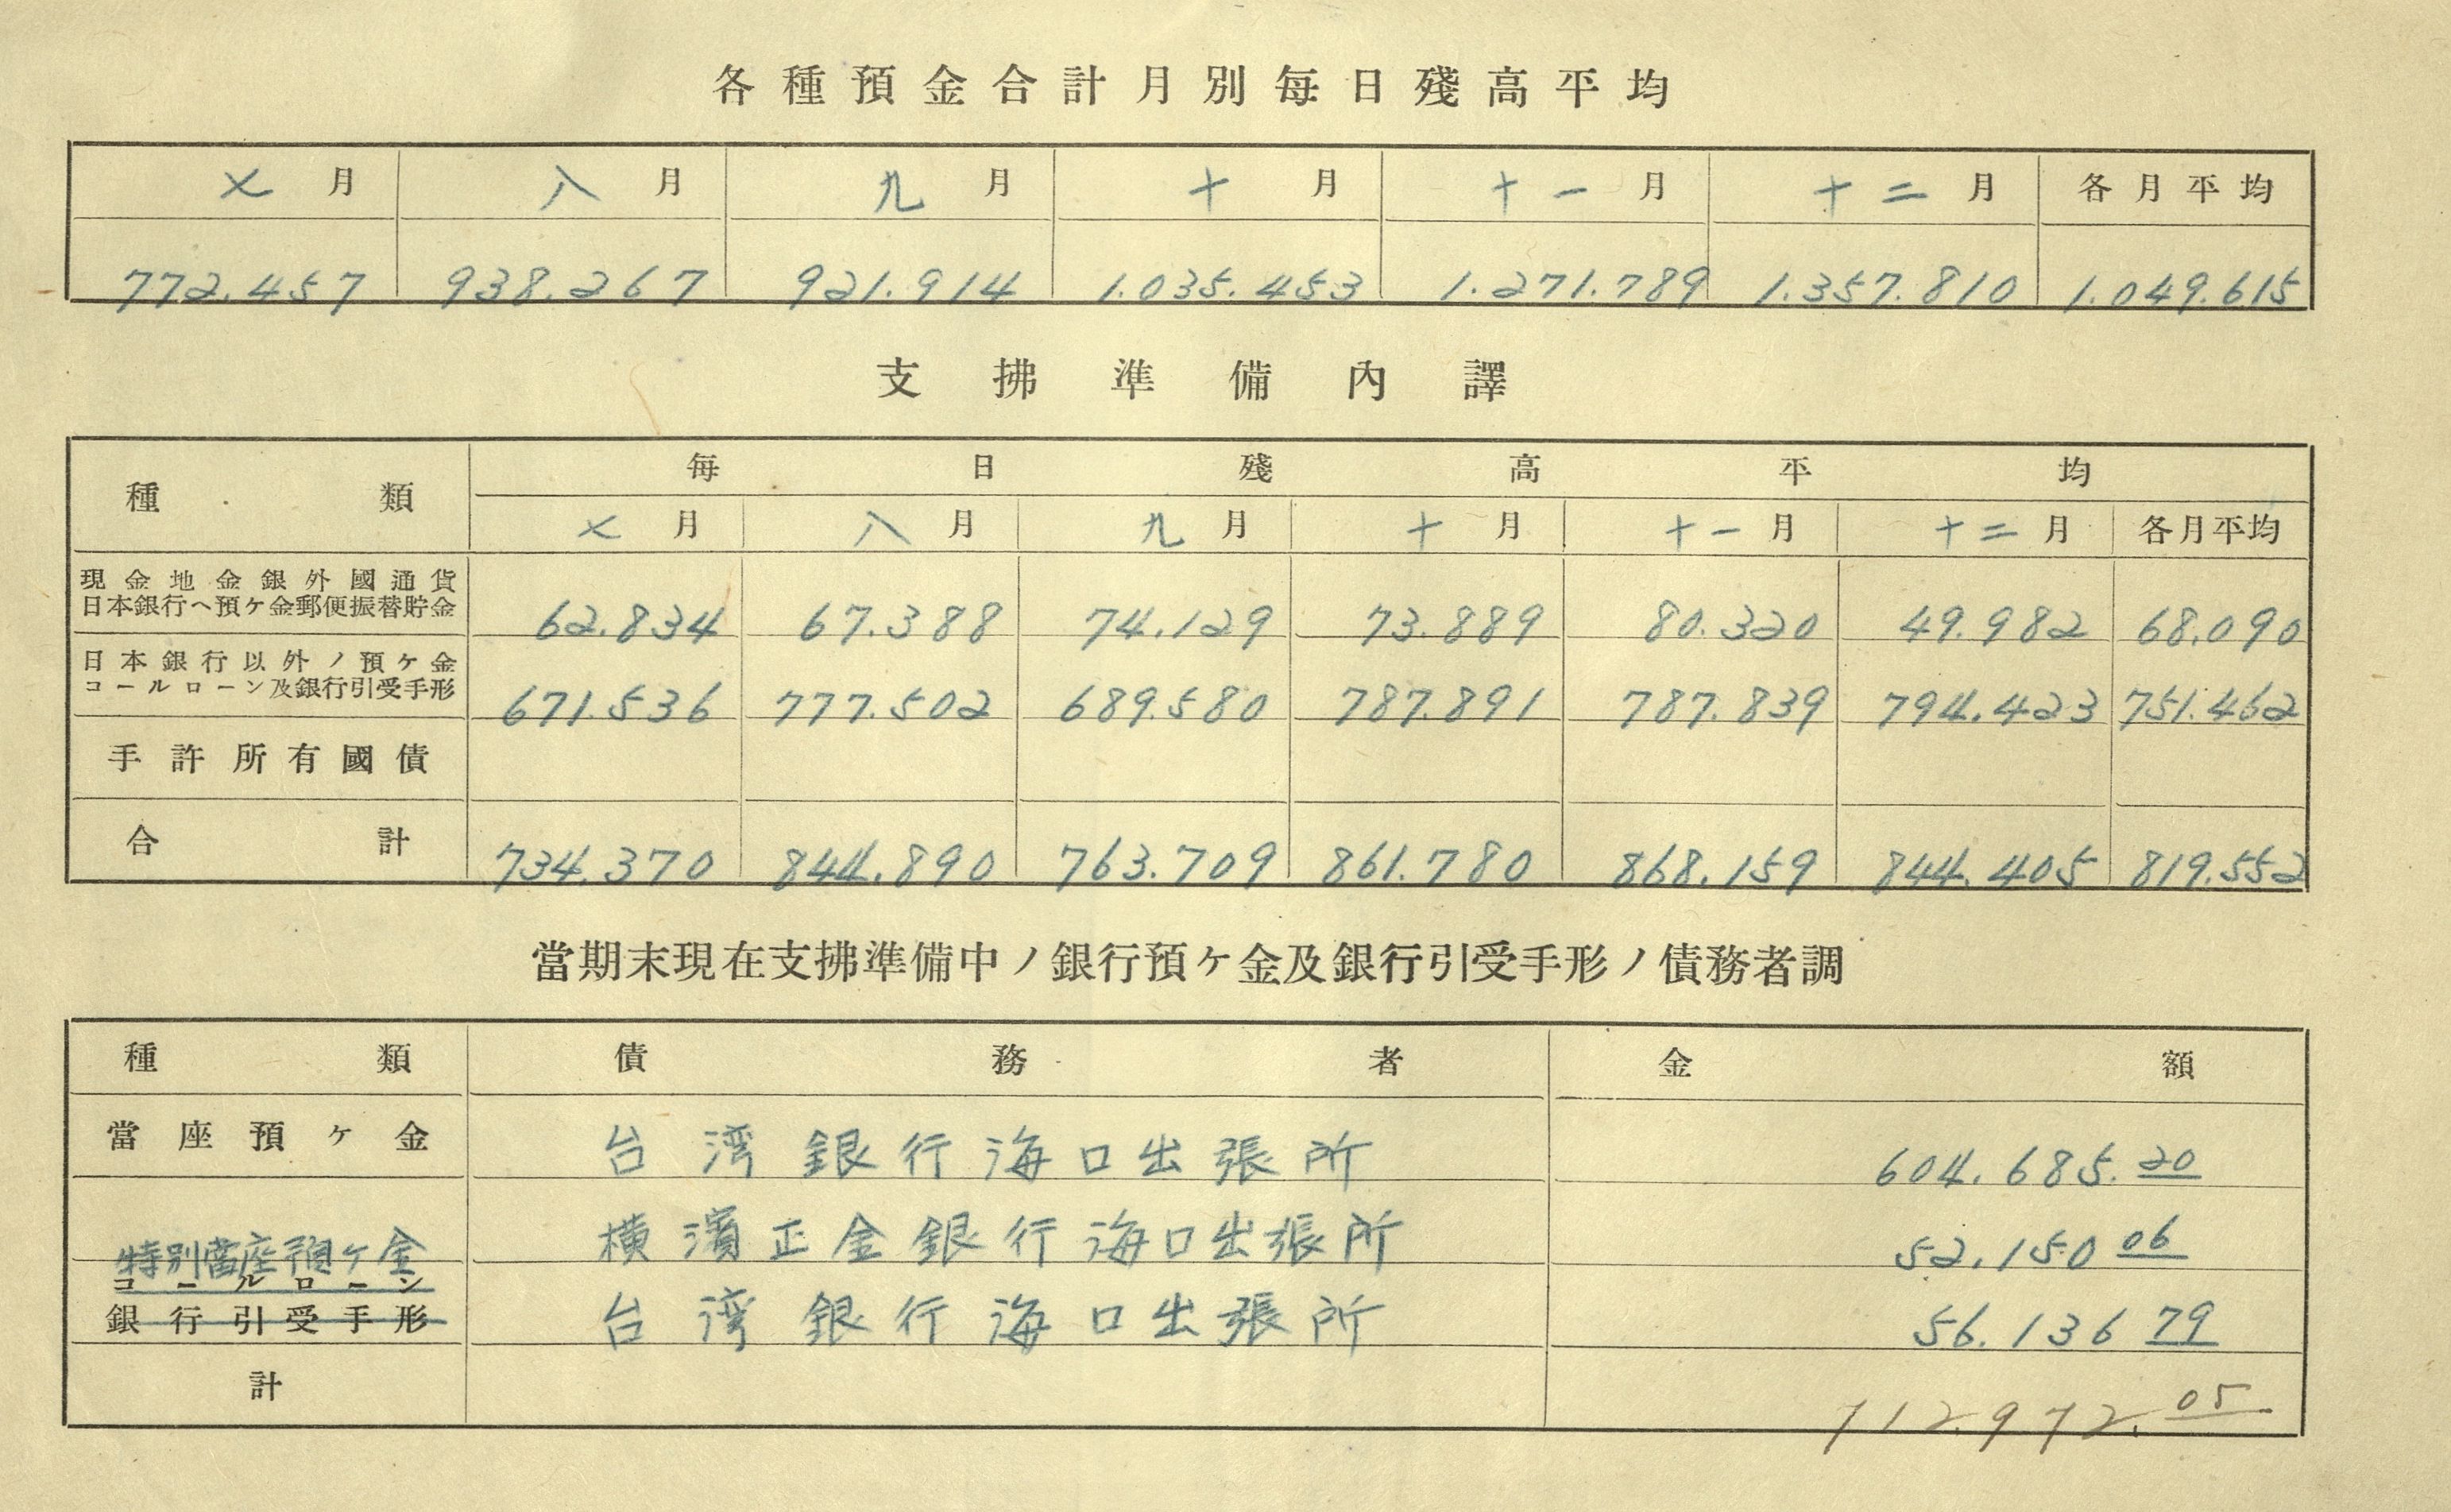 各種預金合計月別每日殘高平均
七月 八月 九月 十月 十一月 十二月 各月平均
772.457 938.267 921.914 1.035.453 1.271.789 1.357.810 1.049.615
支拂準備內譯
種類 每日殘高平均
七月 八月 九月 十月 十一月 十二月 各月平均
現金地金銀外國通貨
日本銀行へ預ケ金郵便振替貯金 62.834 67.388 74.129 73.889 80.320 49.982 68.090
日本銀行以外ノ預ケ金
コールローン及銀行引受手形 671.536 777.502 689.580 787.891 787.839 794.423 751.462
手許所有國債
合計 734.370 844.890 763.709 861.780 868.159 844.405 819.552
當期末現在支拂準備中ノ銀行預ケ金及銀行引受手形ノ債務者調
種類 債務者 金額
當座預ケ金 台湾銀行海口出張所 604.685.20
橫濱正金銀行海口出張所 52.150 06
特別當座預ケ金
コールローン
銀行引受手形 台湾銀行海口出張所 56.136 79
計 712.972.05